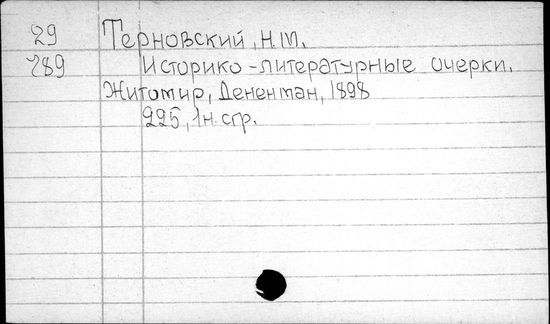 29 Терновский, Н.М.
789 Историко-литературные очерки.
Житомир, Дененман, 1898
225, 1н. стр.